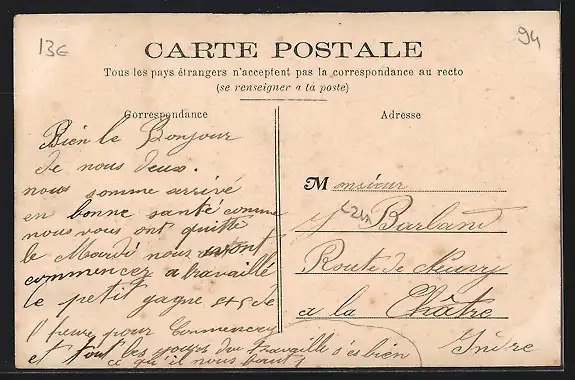 13€
94
CARTE POSTALE
Tous les pays étrangers n'acceptent pas la correspondance au recto
(se renseigner a la poste)
Correspondance
Bien le Bonjour
de nous deux.
nous somme arrivé
en bonne santé comme
nous vous ont quitté
le Mardi nous avont
commencez a travaillé
le petit gagne et 5 de
l'heure pour Commencer
et tout les jours du travaille s'es bien
ce qu'il nous faut
Adresse
Monsieur
Barland
Route de
a la Châtre
Indre